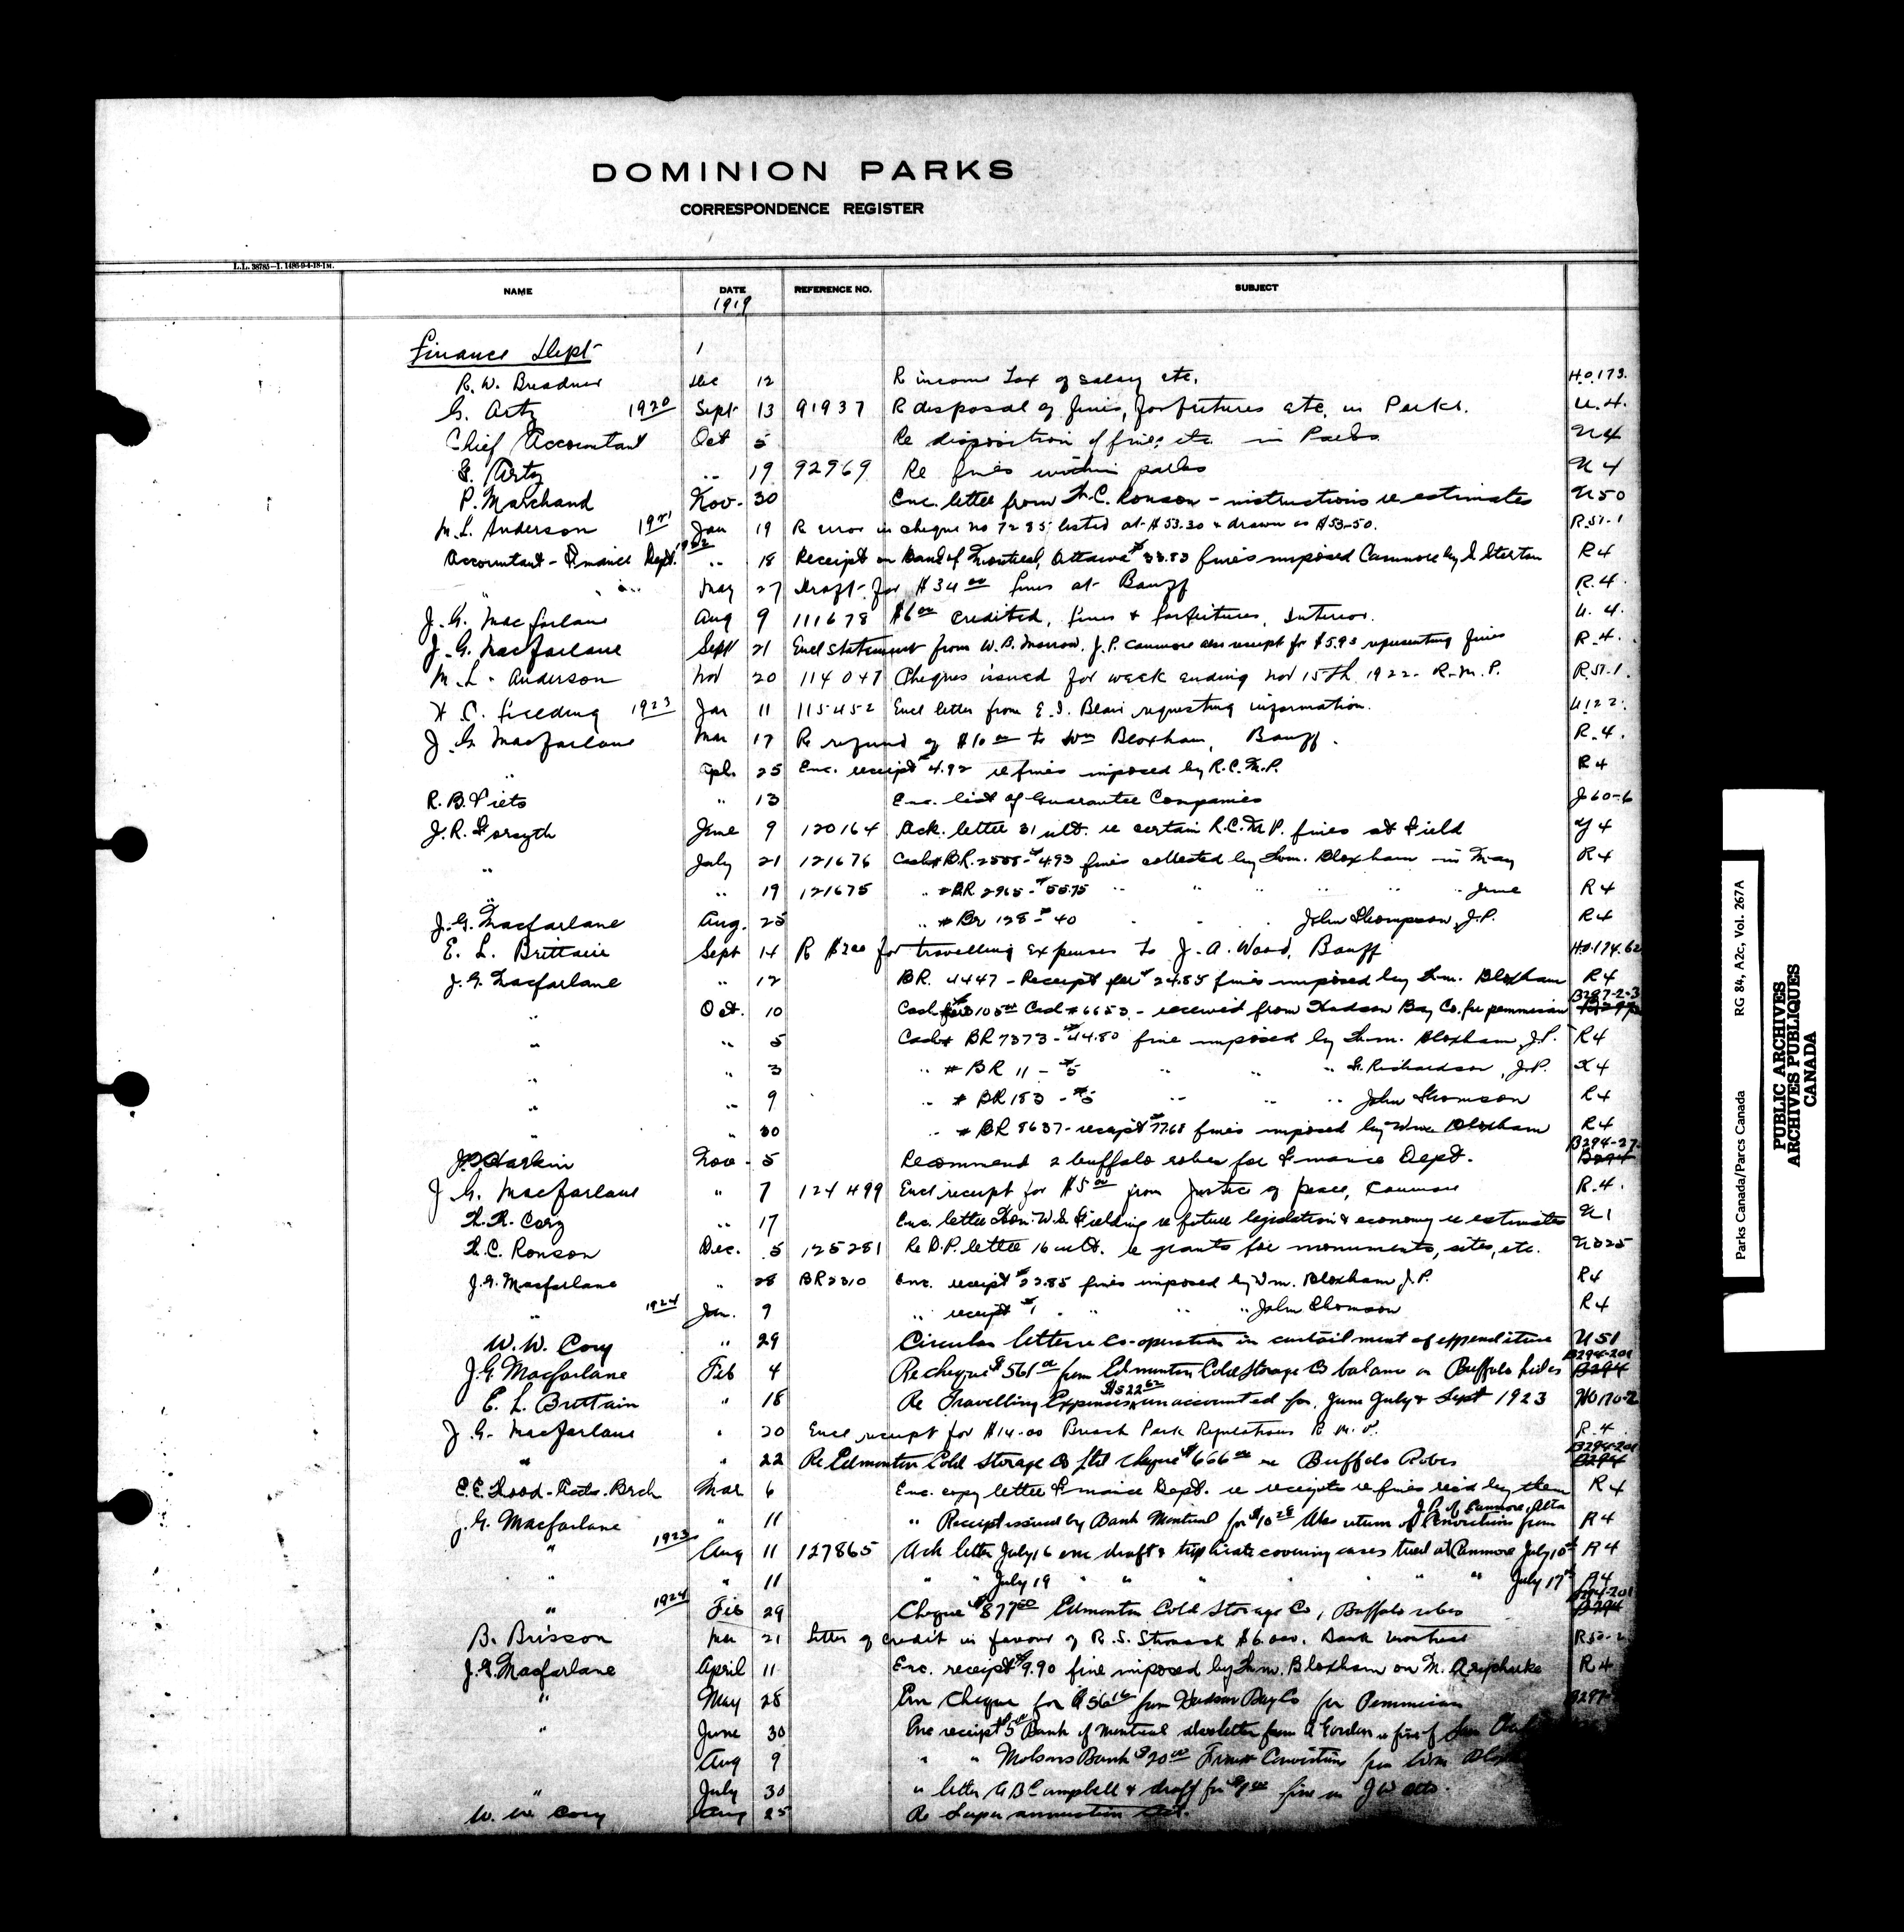 DOMINION PARKS
CORRESPONDENCE REGISTER
L.L. 38785-1. 1486-9-4-18-1M.
NAME DATE REFERENCE NO. SUBJECT
1919
Finance Dept 1
R. W. Breadner Dec 12 R income Tax of salary etc. H.O.173.
G. Artz 1920 Sept 13 91937 R disposal of fines, forfeitures etc. in Parks. U.4.
Chief Accountant Oct 5 Re disposition of fines etc. in Parks U4
G. Artz .. 19 92969 Re fines within parks U 4
P. Marchand Nov. 30 Enc. letter from H.C. Ronson - instructions re estimates U50
M. L. Anderson 1921 Jan 19 R error in cheque no 7285 listed at $53.30 & drawn as $53-50. R.57.1
Accountant - Finance Dept. 1922 .. 18 Receipt on Bank of Montreal, Ottawa $33.83 fines imposed Canmore by R4
" " May 27 Draft for $34 00 fines at Banff R.4.
J. G. Macfarlane Aug 9 111678 $6 00 credited, fines & forfeitures, Interior. U. 4.
J. G. Macfarlane Sept 21 Encl statement from W. B. Morrow. J.P. Canmore also receipt for $5.93 representing fines R.4.
M. L. Anderson Nov 20 114047 Cheques issued for week ending Nov 15th 1922 - R.M.P. R.57.1.
H C. Fieeding 1923 Jan 11 115452 Encl letter from E. I. Blair requesting information. U122.
J. G Macfarlane Mar 17 Re refund of $10 00 to Wm Bloxham, Banff. R.4.
" Apl. 25 Enc. receipt $4.92 re fines imposed by R.C.M.P. R4
R. B. Viets " 13 Enc. list of Guarantee Companies J60-6
J. R. Forsyth June 9 120164 Ack. letter 31 ult. re certain R.C.M.P. fines at Field Y 4
" July 21 121676 Cash # BR. 2555 - $493 fines collected by Wm. Bloxham in May R4
" .. 19 121675 .. # BR 2965 - $55.75 .. .. .. .. .. June R4
J. G. Macfarlane Aug. 25 .. # Br 128 - $40 . . . John Thompson, J.P. R4
E. L. Brittain Sept 14 R $200 for travelling expenses to J. A. Wood, Banff H.O.174.62
J. G. Macfarlane .. 12 BR. 4447 - Receipt for $24.85 fines imposed by Wm. Bloxham R4
" Oct. 10 Cash for $105 00 Cash # 6653 - received from Hudson Bay Co. for pemmican B297-2-3
" .. 5 Cash # BR 7373 - $44.80 fine imposed by Wm. Bloxham, J.P. R4
" .. 3 .. # BR 11 - $5 " " " G. Richardson, J.P. X4
" .. 9 .. # BR 153 - $5 .. .. .. John Thomson R4
" .. 30 .. # BR 8637 - receipt $77.68 fines imposed by Wm Bloxham R4
J.B. Harkin Nov. 5 Recommend 2 buffalo robes for Finance Dept. B294-27 B294
J G. Macfarlane " 7 124499 Encl receipt for $5 00 from Justice of peace, Canmore R.4.
W. W. Cory .. 17 Enc. letter Hon. W.S. Fielding re future legislation & economy re estimates U1
H. C. Ronson Dec. 5 125281 Re D.P. letter 16 ult. re grants for monuments, sites, etc. U325
J. G. Macfarlane .. 28 BR2310 Enc. receipt $22.85 fines imposed by Wm. Bloxham J.P. R4
" 1924 Jan. 9 .. receipt $1 . .. .. .. John Thomson R4
W. W. Cory " 29 Circular letter re Co-operation in curtailment of expenditure U51
J. G. Macfarlane Feb 4 Re cheque $561 00 from Edmonton Cold Storage Co balance on Buffalo hides B294-201 B294
E. L. Brittain " 18 Re Travelling Expenses $522 62 unaccounted for, June July & Sept 1923 HO170-2
J. G. Macfarlane " 20 Encl receipt for $14.00 Breach Park Regulations R. M. P. R.4
" " 22 Re Edmonton Cold Storage Co Ltd cheque $666 00 re Buffalo Robes B294-201 B294
Mar 6 Enc. copy letter Finance Dept. re receipts re fines recd by them R4
J. G. Macfarlane " 11 " Receipt issued by Bank Montreal for $10 28 Also return of Convictions from J.P. of Canmore, Alta R4
" 1923 Aug 11 127865 Ack letter July 16 enc draft & triplicate covering cases tried at Canmore July 10th R4
" " 11 " " July 19 " " " " " " July 17th R4
" 1924 Feb 29 Cheque $877 50 Edmonton Cold Storage Co, Buffalo robes B294-201 B294
B. Brisson Mar 21 Letter of credit in favour of R. S. Stronach $6.000. Bank Montreal
J. G. Macfarlane April 11 Enc. receipt $9.90 fine imposed by Wm. Bloxham on M. R4
" May 28 Enc Cheque for $56 16 from Hudson Bay Co for Pemmican B297
" June 30 Enc receipt $5 00 Bank of Montreal also letter from A Gordon re fine of
Aug 9 " " Molsons Bank $20 00 Convictions from Wm
" July 30 " letter A B Campbell & draft for fine on J W
W. W Cory Aug 25 Re Superannuation Act.
Parks Canada/Parcs Canada RG 84, A2c, Vol. 267A
PUBLIC ARCHIVES
ARCHIVES PUBLIQUES
CANADA